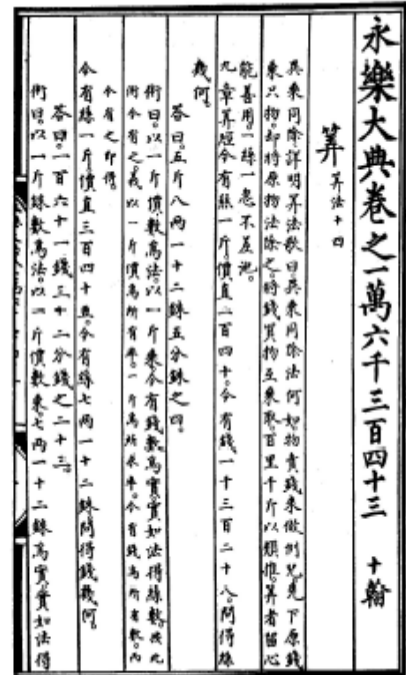 永樂大典卷之一萬六千三百四十三 十翰
筭 筭法十四
異乗同除詳明筭法歌曰異乗同除法何如物賣錢来做例兒見下原錢
乗只物却将原物法除之将錢買物互乗取百里千斤以類推筭者留心
能善用一絲一忽不差池
九章筭經今有絲一斤價直二百四十今有錢一千三百二十八問得絲
幾何
荅曰五斤八兩一十二銖五分銖之四
術曰以一斤價數為法以一斤乗今有錢數為實實如法得絲數按此
術今有之義以一斤價為所有率一斤為所求率今有錢為所有數而
今有之即得
今有絲一斤價直三百四十五今有絲七兩一十二銖問得錢幾何
荅曰一百六十一錢三十二分錢之二十三
術曰以一斤銖數為法以一斤價數乗七兩一十二銖為實實如法得